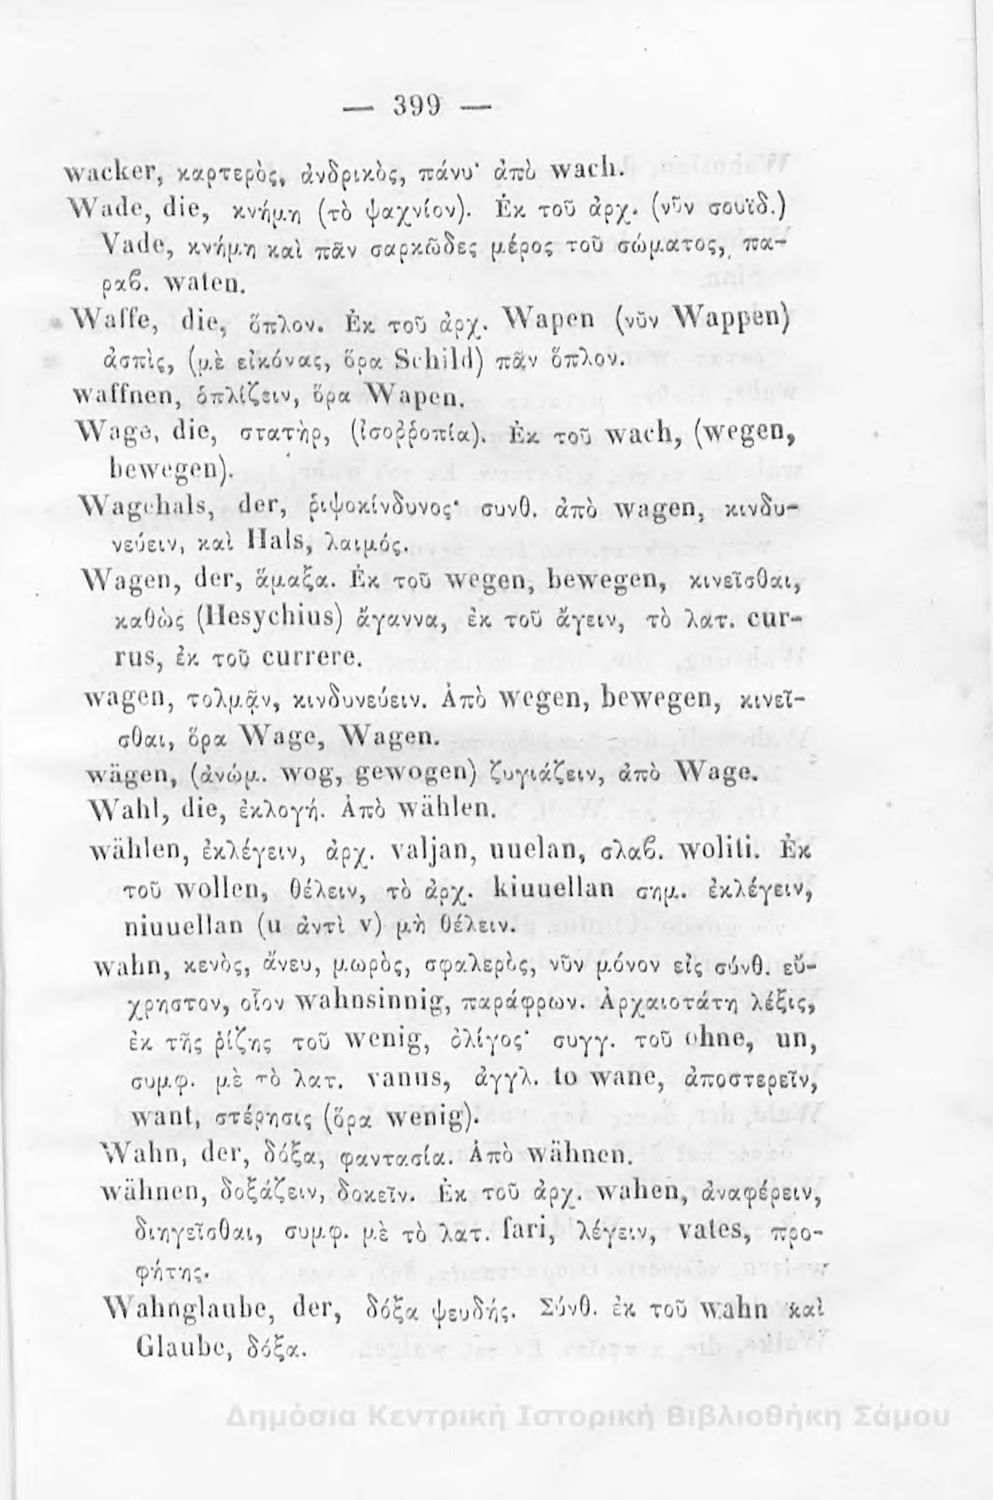 — 399 —
wacker, καρτερὸς, ἀνδρικὸς, πάνυ· ἀπὸ wach.
Wade, die, κνήμη (τὸ ψαχνίον). Ἐκ τοῦ ἀρχ. (νῦν σουϊδ.)
Vade, κνήμη καὶ πᾶν σαρκῶδες μέρος τοῦ σώματος, πα-
ραβ. waten.
Waffe, die, ὅπλον. Ἐκ τοῦ ἀρχ. Wapen (νῦν Wappen)
ἀσπὶς, (μὲ εἰκόνας, ὅρα Schild) πᾶν ὅπλον.
waffnen, ὁπλίζειν, ὅρα Wapen.
Wage, die, στατὴρ, (ἰσοῤῥοπία). Ἐκ τοῦ wach, (wegen,
bewegen).
Wagehals, der, ῥιψοκίνδυνος· συνθ. ἀπὸ wagen, κινδυ-
νεύειν, καὶ Hals, λαιμός.
Wagen, der, ἅμαξα. Ἐκ τοῦ wegen, bewegen, κινεῖσθαι,
καθὼς (Hesychius) ἄγαννα, ἐκ τοῦ ἄγειν, τὸ λατ. cur-
rus, ἐκ τοῦ currere.
wagen, τολμᾷν, κινδυνεύειν. Ἀπὸ wegen, bewegen, κινεῖ-
σθαι, ὅρα Wage, Wagen.
wägen, (ἀνώμ. wog, gewogen) ζυγιάζειν, ἀπὸ Wage.
Wahl, die, ἐκλογή. Ἀπὸ wählen.
wählen, ἐκλέγειν, ἀρχ. valjan, uuelan, σλαβ. woliti. Ἐκ
τοῦ wollen, θέλειν, τὸ ἀρχ. kiuuellan σημ. ἐκλέγειν,
niuuellan (u ἀντὶ v) μὴ θέλειν.
wahn, κενὸς, ἄνευ, μωρὸς, σφαλερὸς, νῦν μόνον εἰς σύνθ. εὔ-
χρηστον, οἷον wahnsinnig, παράφρων. Ἀρχαιοτάτη λέξις,
ἐκ τῆς ῥίζης τοῦ wenig, ὀλίγος· συγγ. τοῦ ohne, un,
συμφ. μὲ τὸ λατ. vanus, ἀγγλ. to wane, ἀποστερεῖν,
want, στέρησις (ὅρα wenig).
Wahn, der, δόξα, φαντασία. Ἀπὸ wähnen.
wähnen, δοξάζειν, δοκεῖν. Ἐκ τοῦ ἀρχ. wahen, ἀναφέρειν,
διηγεῖσθαι, συμφ. μὲ τὸ λατ. fari, λέγειν, vates, προ-
φήτης.
Wahnglaube, der, δόξα ψευδής. Σύνθ. ἐκ τοῦ wahn καὶ
Glaube, δόξα.
Δημόσια Κεντρική Ιστορική Βιβλιοθήκη Σάμου